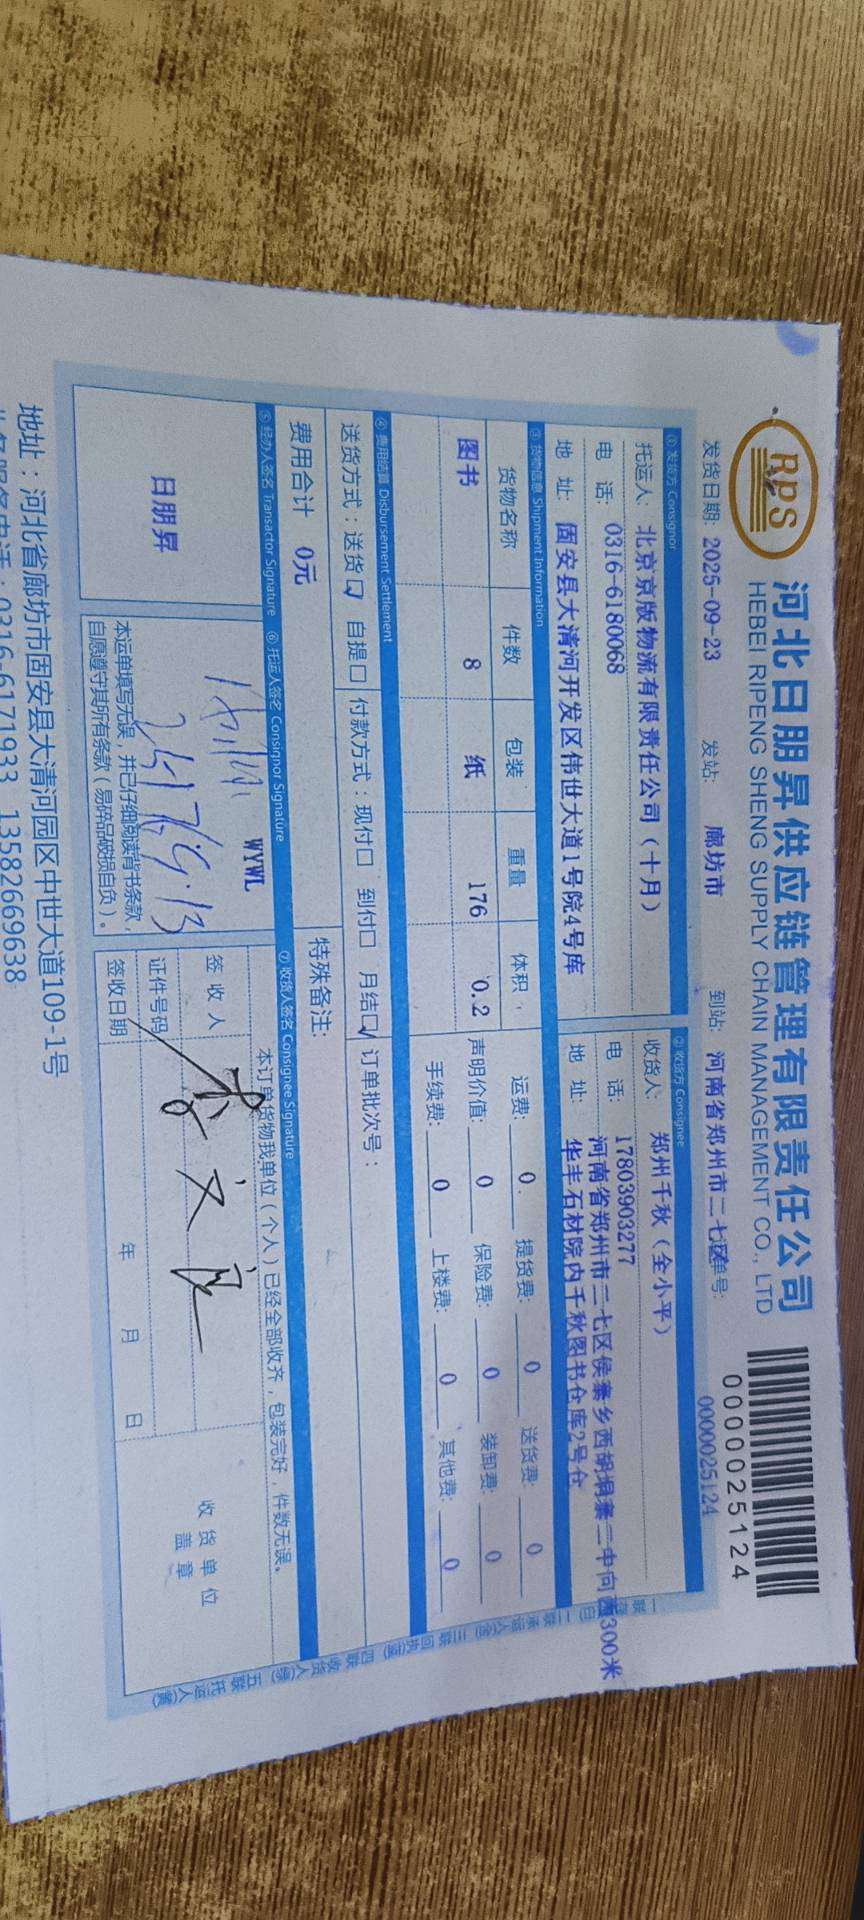 RPS
河北日朋昇供应链管理有限责任公司
HEBEI RIPENG SHENG SUPPLY CHAIN MANAGEMENT CO., LTD
0000025124
发货日期: 2025-09-23 发站: 廊坊市 到站: 河南省郑州市二七区 单号: 0000025124
① 发货方 Consignor
② 收货方 Consignee
托运人: 北京京版物流有限责任公司（十月）
收货人: 郑州千秋（全小平）
电 话: 0316-6180068
电 话: 17803903277
地 址: 固安县大清河开发区伟世大道1号院4号库
地 址: 河南省郑州市二七区侯寨乡西胡垌寨二中向西300米
华丰石材院内千秋图书仓库2号仓
③ 货物信息 Shipment Information
货物名称 件数 包装 重量 体积
运费: 0. 提货费: 0 送货费: 0
图书 8 纸 176 0.2
声明价值: 0 保险费: 0 装卸费: 0
手续费: 0 上楼费: 0 其他费: 0
④ 费用结算 Disbursement Settlement
送货方式：送货☑ 自提☐ 付款方式：现付☐ 到付☐ 月结☑ 订单批次号：
费用合计 0元
特殊备注：
⑤ 经办人签名 Transactor Signature
⑥ 托运人签名 Consignor Signature
⑦ 收货人签名 Consignee Signature
日朋昇
WYWL
本运单填写无误，并已仔细阅读背书条款，
自愿遵守其所有条款（易碎品破损自负）。
本订单货物我单位（个人）已经全部收齐，包装完好，件数无误。
签 收 人
证件号码
签收日期 年 月 日
收 货 单 位
盖 章
地址：河北省廊坊市固安县大清河园区中世大道109-1号
业务服务电话：0316-6171933 13582669638